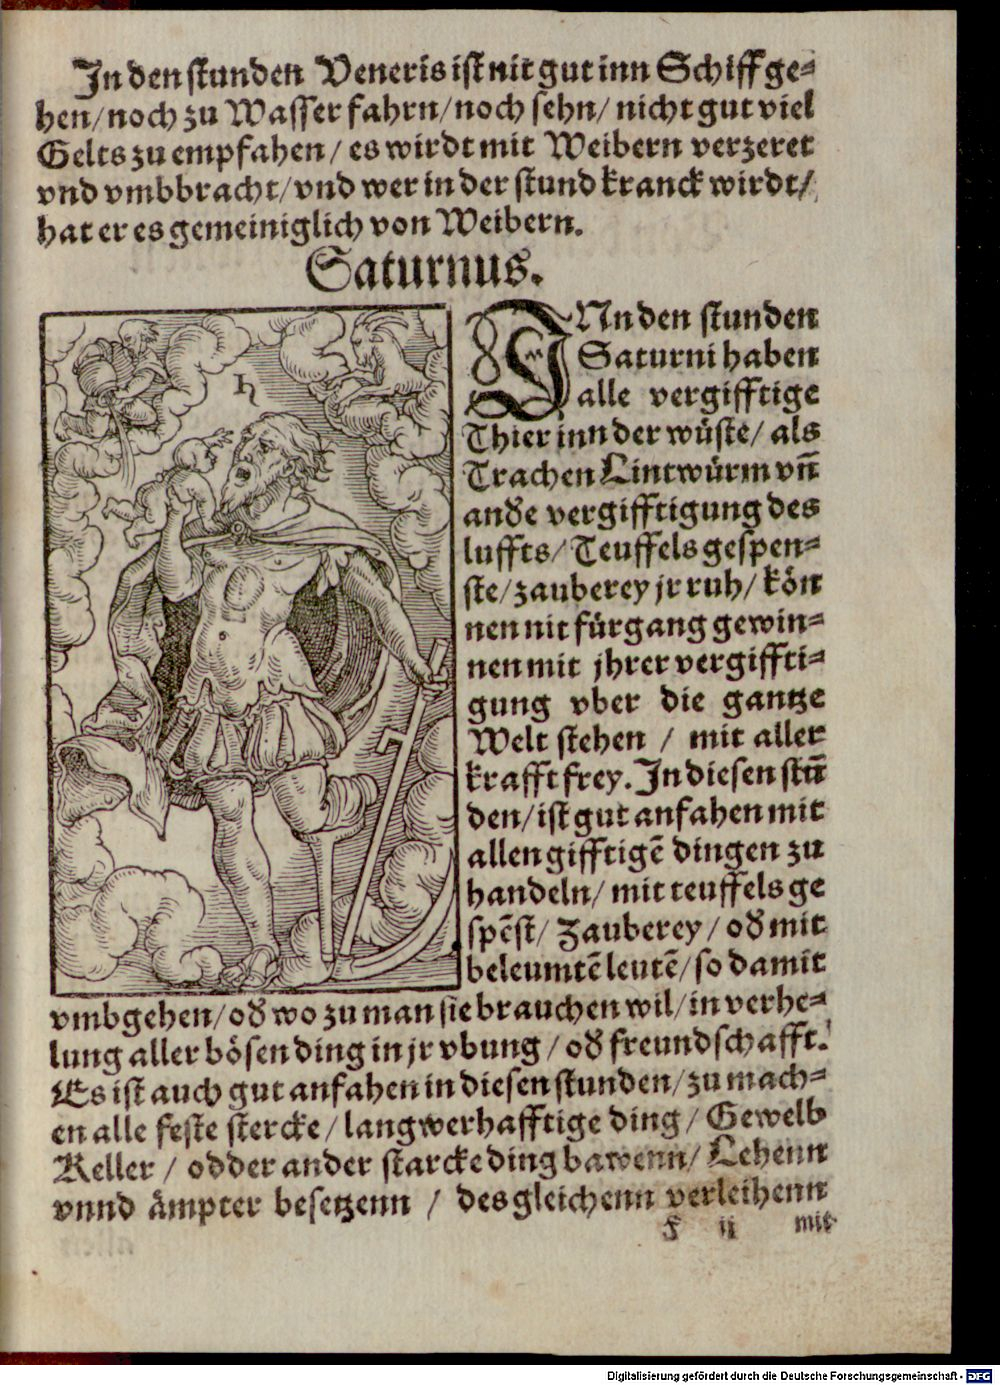 In den stunden Veneris ist nit gut inn Schiff ge-
hen/ noch zu Wasser fahrn/ noch sehn/ nicht gut viel
Gelts zu empfahen/ es wirdt mit Weibern verzeret
vnd vmbbracht/ vnd wer in der stund kranck wirdt/
hat er es gemeiniglich von Weibern.
Saturnus.
♄
INn den stunden
Saturni haben
alle vergifftige
Thier inn der wüste/ als
Trachen Lintwürm vñ
andˀe vergifftigung des
luffts/ Teuffels gespen-
ste/ zauberey jr ruh/ kön
nen nit fürgang gewin-
nen mit jhrer vergiffti-
gung vber die gantze
Welt stehen / mit aller
krafft frey. In diesen stũ
den/ ist gut anfahen mit
allen gifftigẽ dingen zu
handeln/ mit teuffels ge
spẽst/ Zauberey/ odˀ mit
beleumtẽ leutẽ/ so damit
vmbgehen/ odˀ wo zu man sie brauchen wil/ in verhe-
lung aller bösen ding in jr vbung/ odˀ freundschafft.
Es ist auch gut anfahen in diesen stunden/ zu mach-
en alle feste stercke/ langwerhafftige ding/ Gewelb
Keller / odder ander starcke ding bawenn/ Lehenn
vnnd ämpter besetzenn / desgleichenn verleihenn
F ij mit
Digitalisierung gefördert durch die Deutsche Forschungsgemeinschaft - DFG